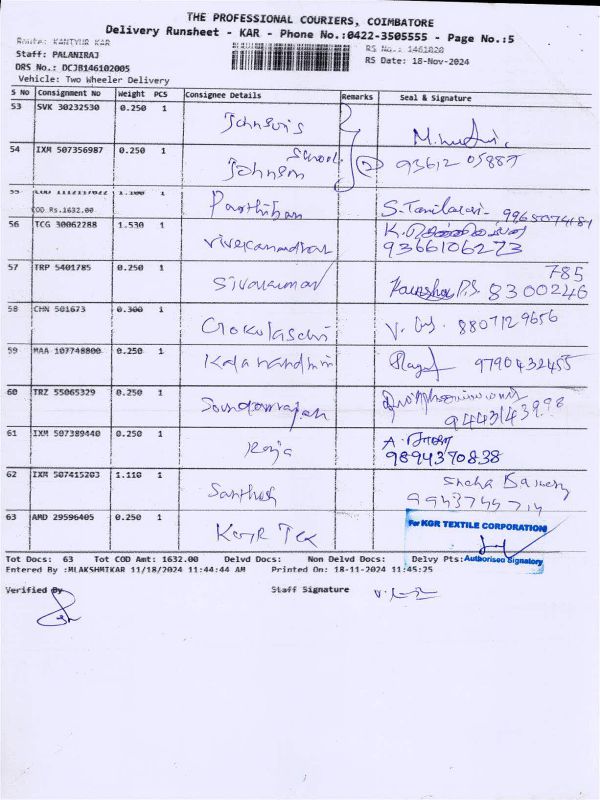 THE PROFESSIONAL COURIERS, COIMBATORE
Delivery Runsheet - KAR - Phone No.:0422-3505555 - Page No.:5
Route: KANIYUR KAR
RS No.: 1461020
Staff: PALANIRAJ
RS Date: 18-Nov-2024
DRS No.: DCJB146102005
Vehicle: Two Wheeler Delivery
S No Consignment No Weight PCS Consignee Details Remarks Seal & Signature
53 SVK 30232530 0.250 1 Johnson's
54 IXM 507356987 0.250 1 Johnson School 2
55 1.100 1 Parthiban S. Tamilarasi 9965074181
COD Rs.1632.00
56 TCG 30062288 1.530 1 Vivekanandhan 9366106273
57 TRP 5401785 0.250 1 Sivakumar P.S. 8300246 785
58 CHN 501673 0.300 1 8807129656
59 MAA 107748800 0.250 1 9790432455
60 TRZ 55065329 0.250 1 Soundararajan
61 IXM 507389440 0.250 1 Roja 9894370838
62 IXM 507415203 1.110 1 Santhosh
63 AMD 29596405 0.250 1 KGR Tex
For KGR TEXTILE CORPORATION
Authorised Signatory
Tot Docs: 63 Tot COD Amt: 1632.00 Delvd Docs: Non Delvd Docs: Delvy Pts:
Entered By :MLAKSHMIKAR 11/18/2024 11:44:44 AM Printed On: 18-11-2024 11:45:25
Verified By Staff Signature